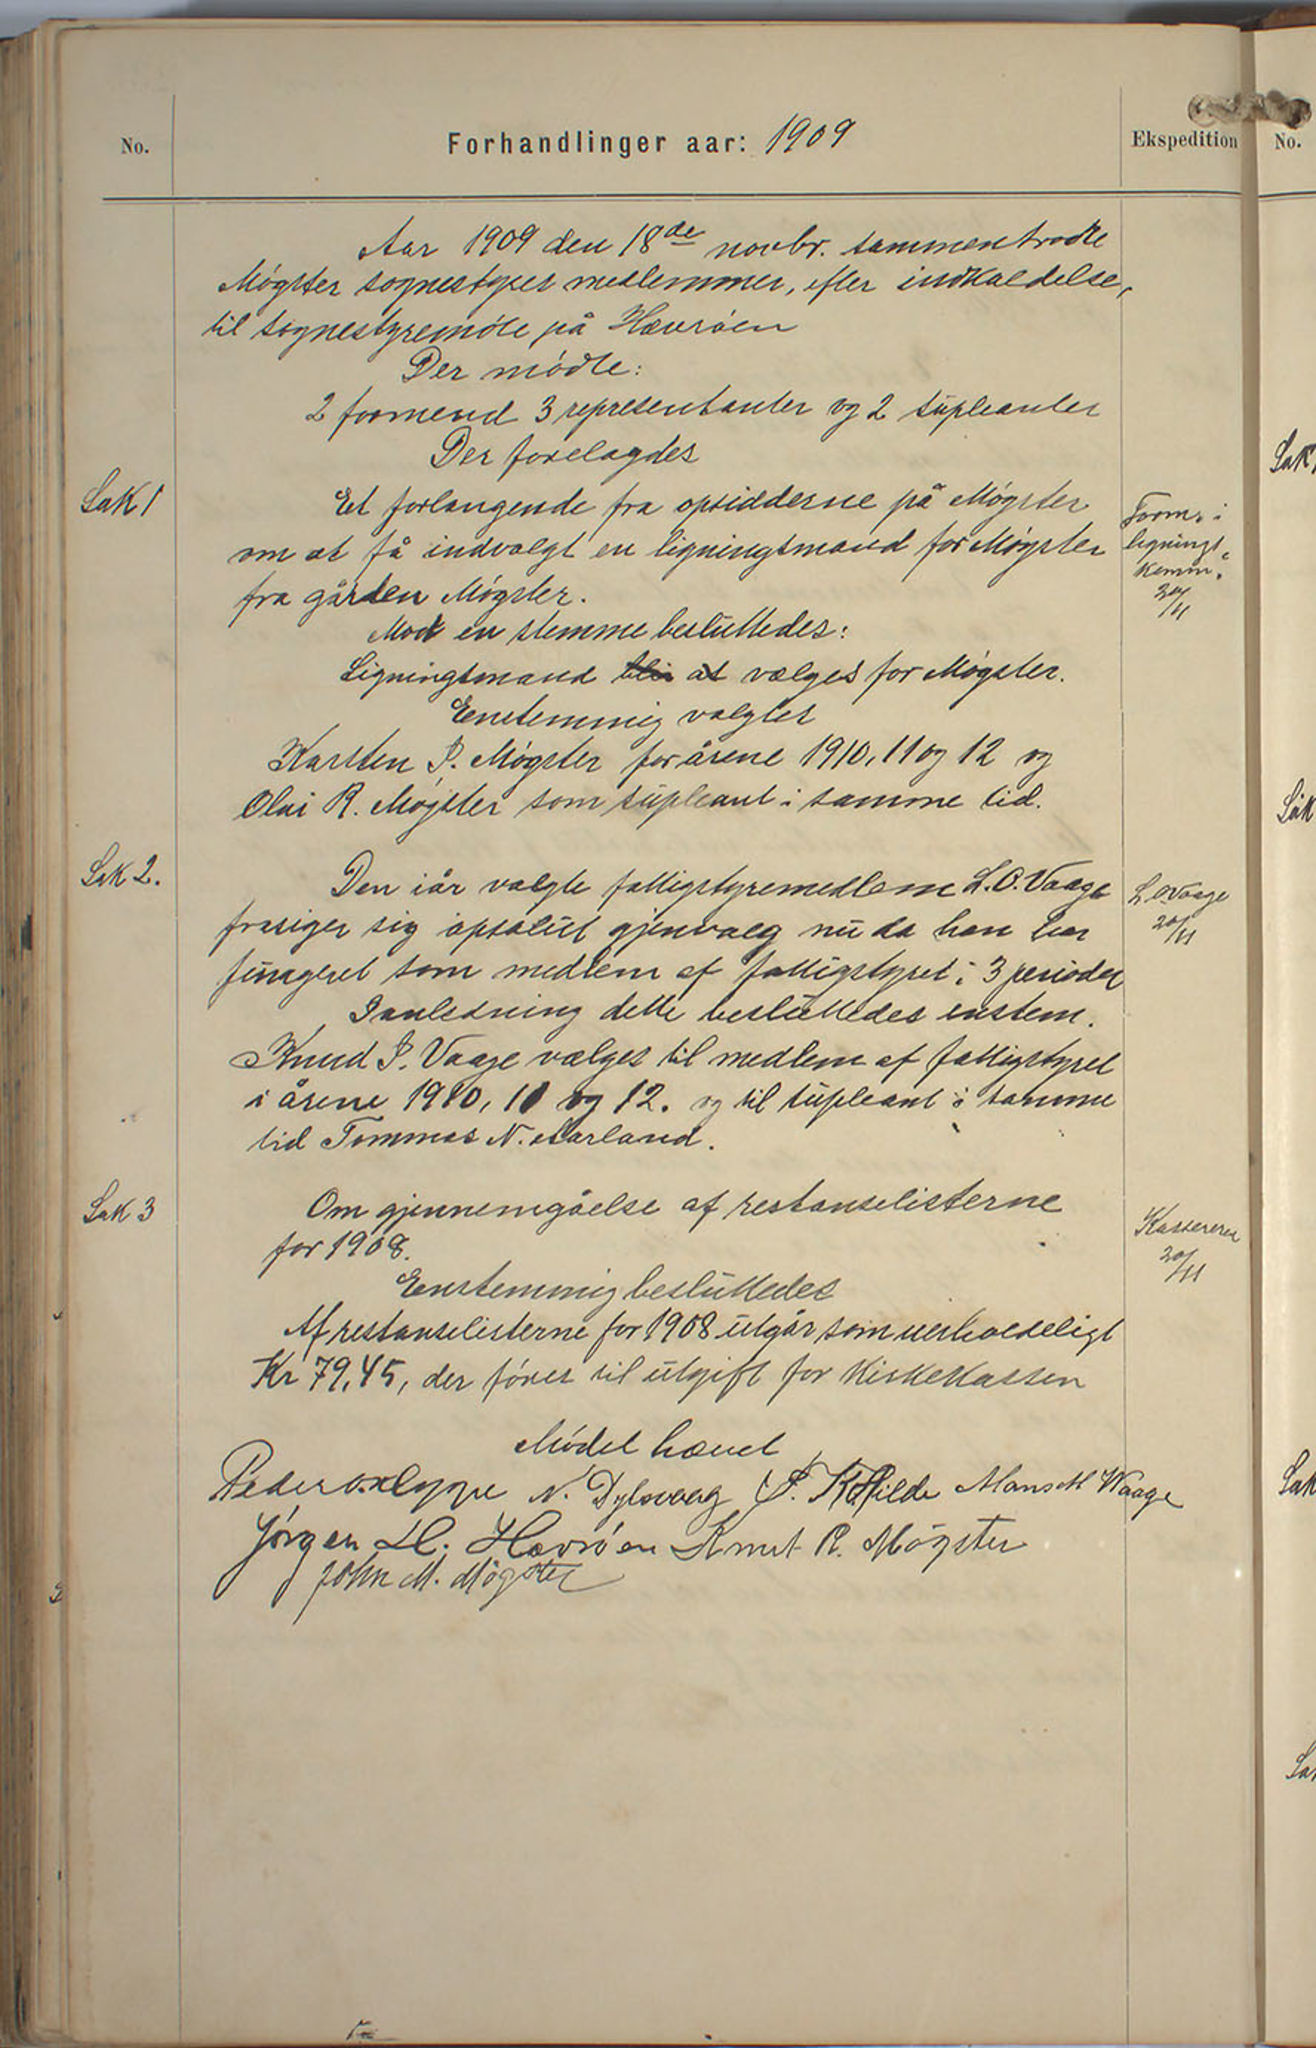 No.
Forhandlinger aar: 1909
Ekspedition
No.
Aar 1909 den 18de novbr. sammentrodte
Møgster sognestyres medlemmer, efter indkaldelse,
til sognestyremøte på Hævrøen
Der mødte:
2 formend 3 representanter og 2 supleanter
Der forelagdes
Sak 1
Et forlangende fra opsidderne på Møgster
om at få indvalgt en ligningsmand for Møgster
fra gården Møgster.
Form. i
lignings
komm.
20/11
Mod en stemme besluttedes:
Ligningsmand blir at vælges for Møgster.
Enstemmig valgtes
Karsten P. Møgster for årene 1910, 11 og 12 og
Olai R. Møgster som supleant i samme tid.
Sak 2.
Den iår valgte fattigstyremedlem L.O. Vaage
frasiger sig apsolut gjenvalg nu da han har
fungeret som medlem af fattigstyret i 3 perioder
L.O. Vaage
20/11
I anledning dette besluttedes enstem.
Knud P. Vaage vælges til medlem af fattigstyret
i årene 1910, 11 og 12. og til supleant i samme
tid Tommas N. Aarland.
Sak 3
Om gjennemgåelse af restanselisterne
for 1908.
Kassereren
20/11
Enstemmig besluttedes
Af restanselisterne for 1908 utgår som uerholdeligt
Kr 79,45, der føres til utgift for kirkekassen
Mødet hævet
Peder Alyppe N. Dylsvaag Mons M Waage
Jørgen H. Hævrøen Knut R. Møgster
John M. Møgster
Sak
Sak
Sak
Sak